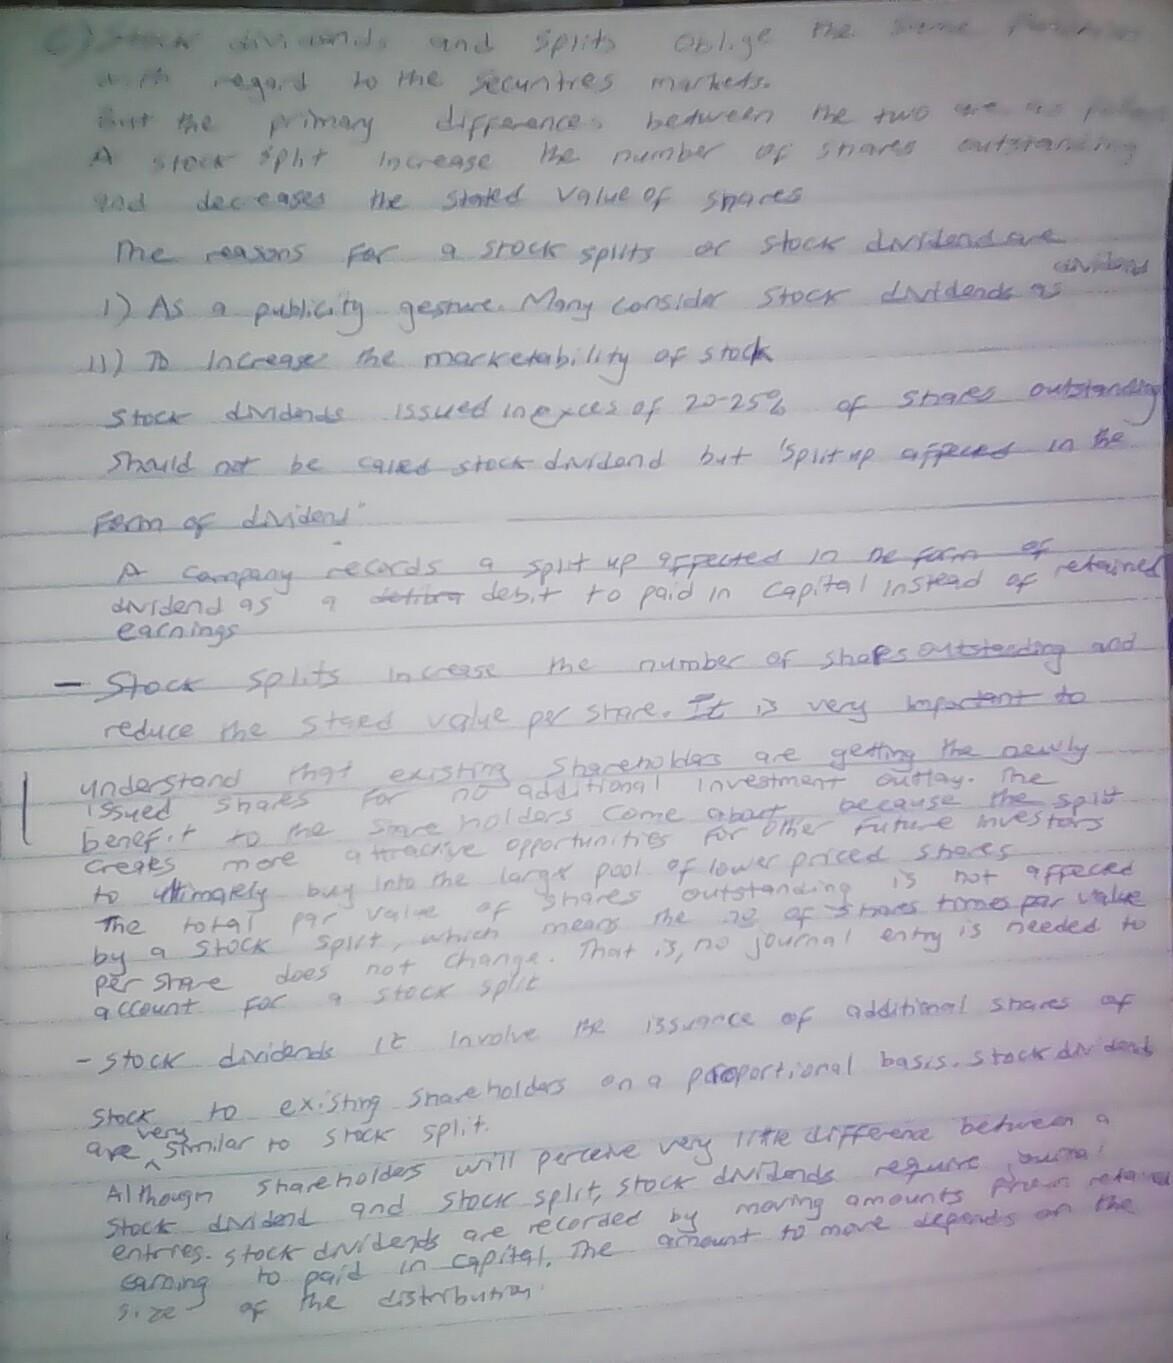 C) Stock dividends and splits oblige the same
with regard to the securities markets.
But the primary differences between the two are as
A stock split increase the number of shares outstanding
and decreases the stated value of shares
The reasons for a stock splits or stock dividend are
i) As a publicity gesture. Many consider stock dividends as dividend
ii) To increase the marketability of stock
stock dividends issued in exces of 20-25% of shares outstanding
should not be called stock dividend but 'split up affected in the
form of dividend"
A company records a split up affected in the form of
dividend as a debit to paid in capital instead of retained
earnings
- Stock splits increase the number of shares outstanding and
reduce the stated value per share. It is very important to
understand that existing shareholders are getting the newly
issued shares for no additional investment outlay. The
benefit to the share holders come about because the split
creates more attractive opportunities for other future investors
to ultimately buy into the large pool of lower priced shares
The total par value of shares outstanding is not affected
by a stock split, which means the no of shares times par value
per share does not change. That is, no journal entry is needed to
account for a stock split
- stock dividends it involve the issuance of additional shares of
stock to existing shareholders on a proportional basis. stock dividends
are very similar to stock split.
Although shareholders will perceive very little difference between a
stock dividend and stock split, stock dividends require journal
entries. stock dividends are recorded by moving amounts from retained
earning to paid in capital. The amount to move depends on the
size of the distribution.